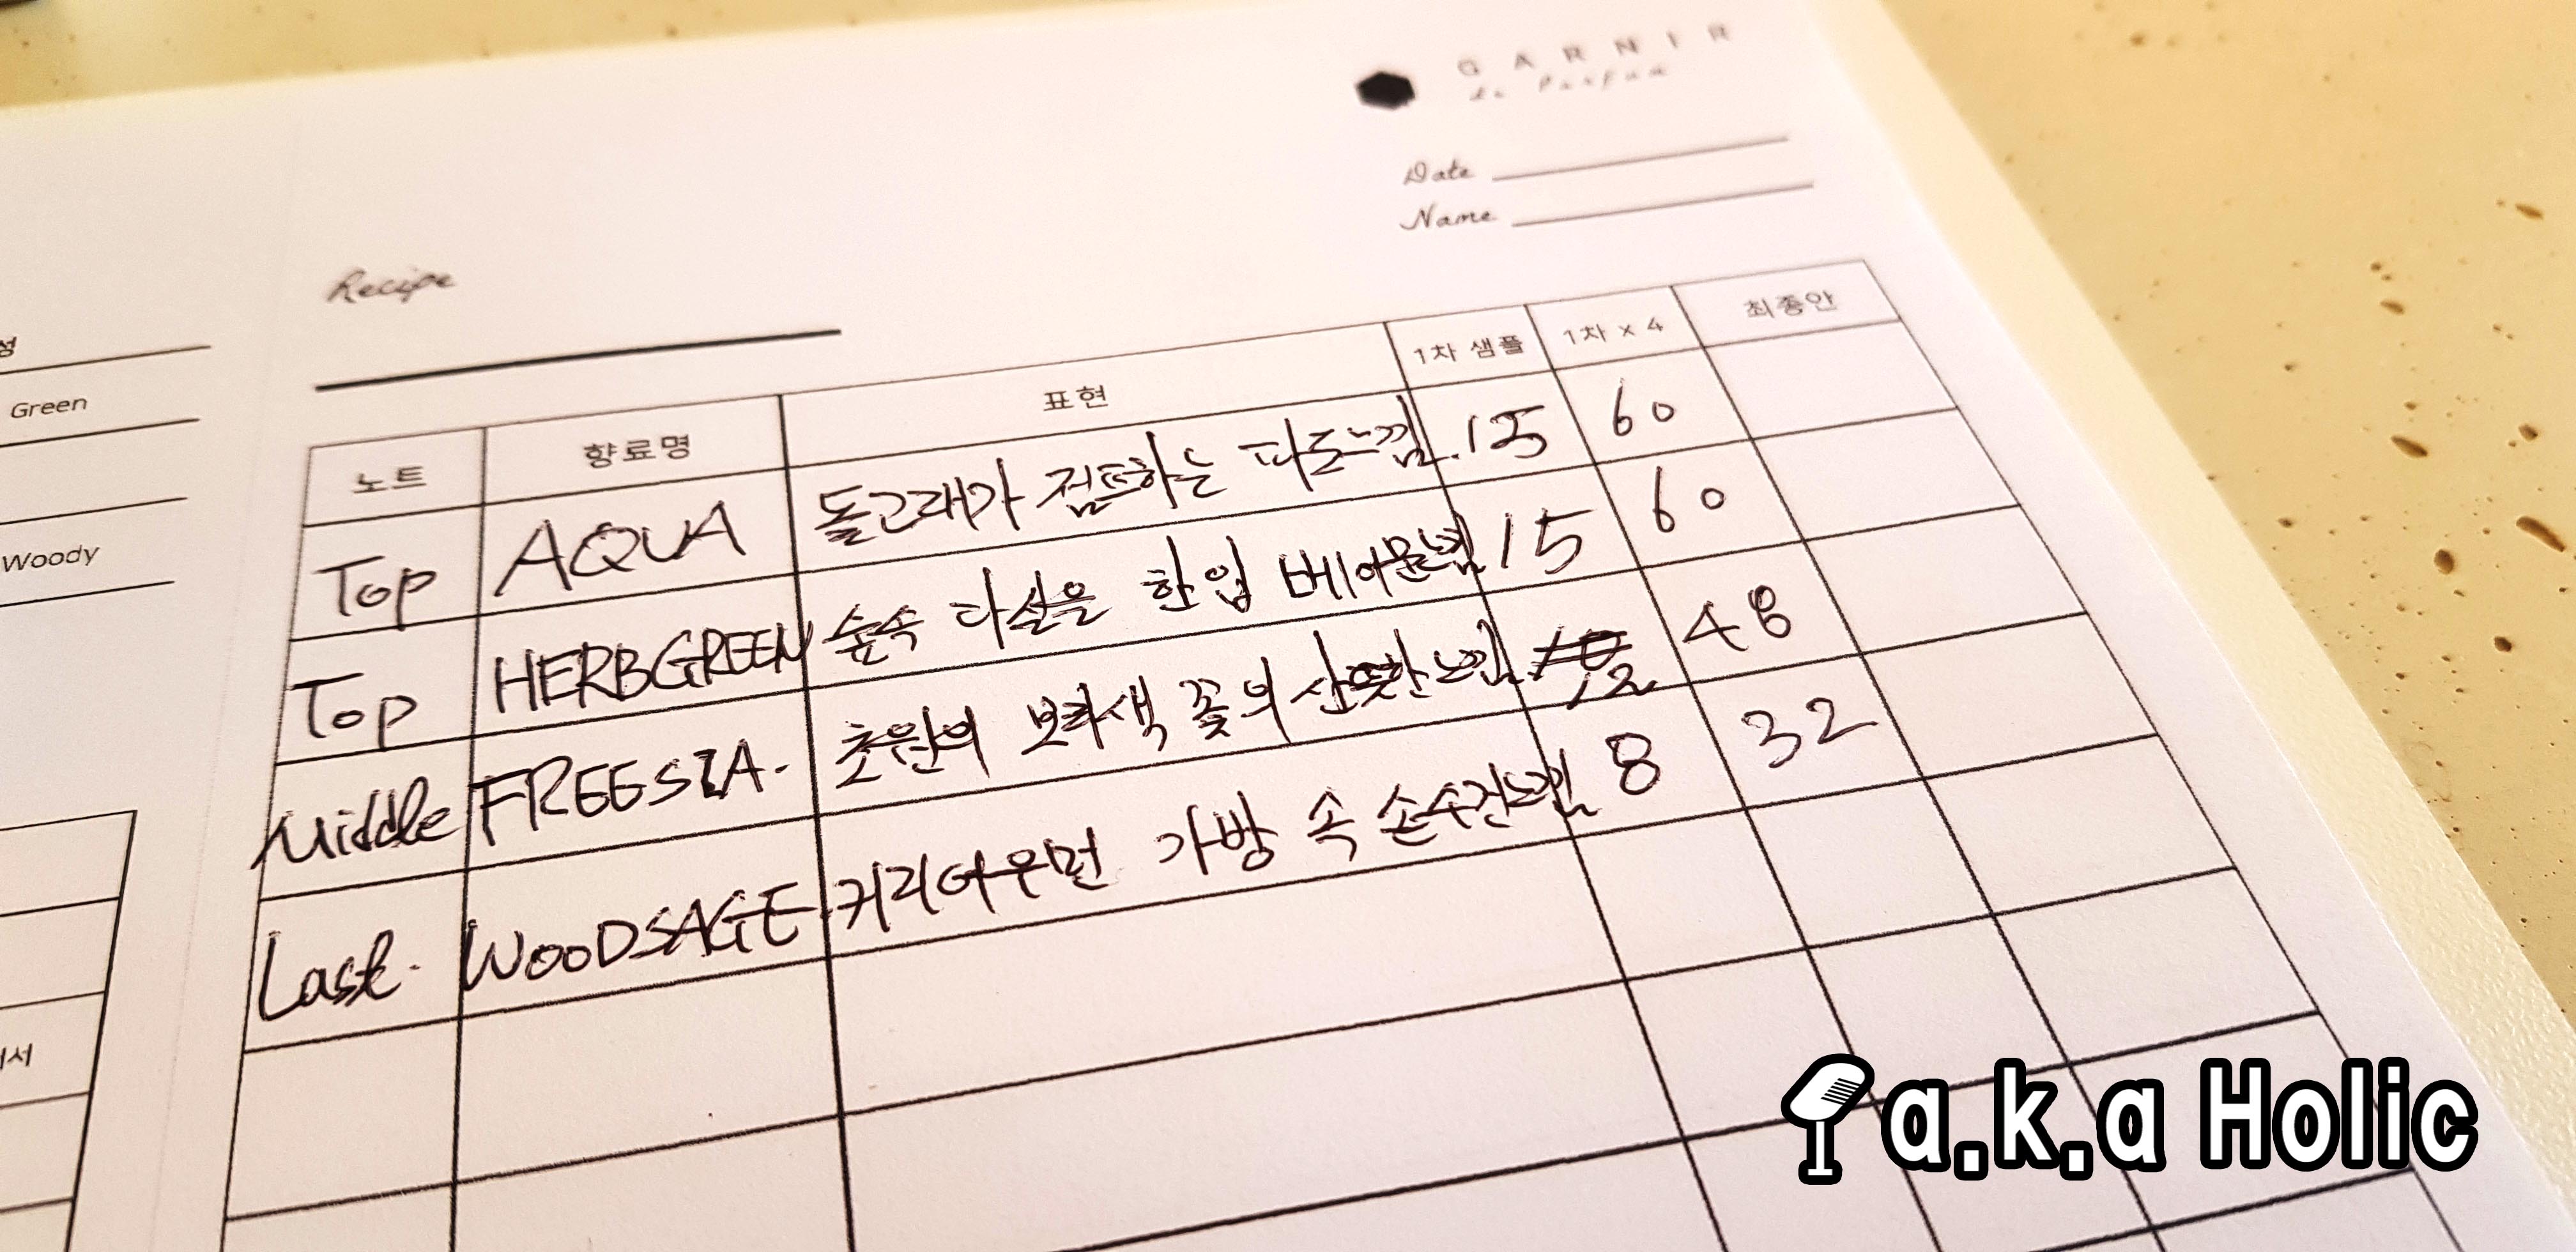 GARNIR
de Parfum
Date
Name
Recipe
성
Green
Woody
노트 향료명 표현 1차 샘플 1차 x 4 최종안
Top AQUA 돌고래가 점프하는 파도느낌. 15 60
Top HERBGREEN 숲속 다설은 한 입 베어문느낌 15 60
Middle FREESIA. 초원의 보라색 꽃의 산뜻한 느낌. 12 48
Last. WOODSAGE 커리어우먼 가방 속 손수건느낌 8 32
a.k.a Holic